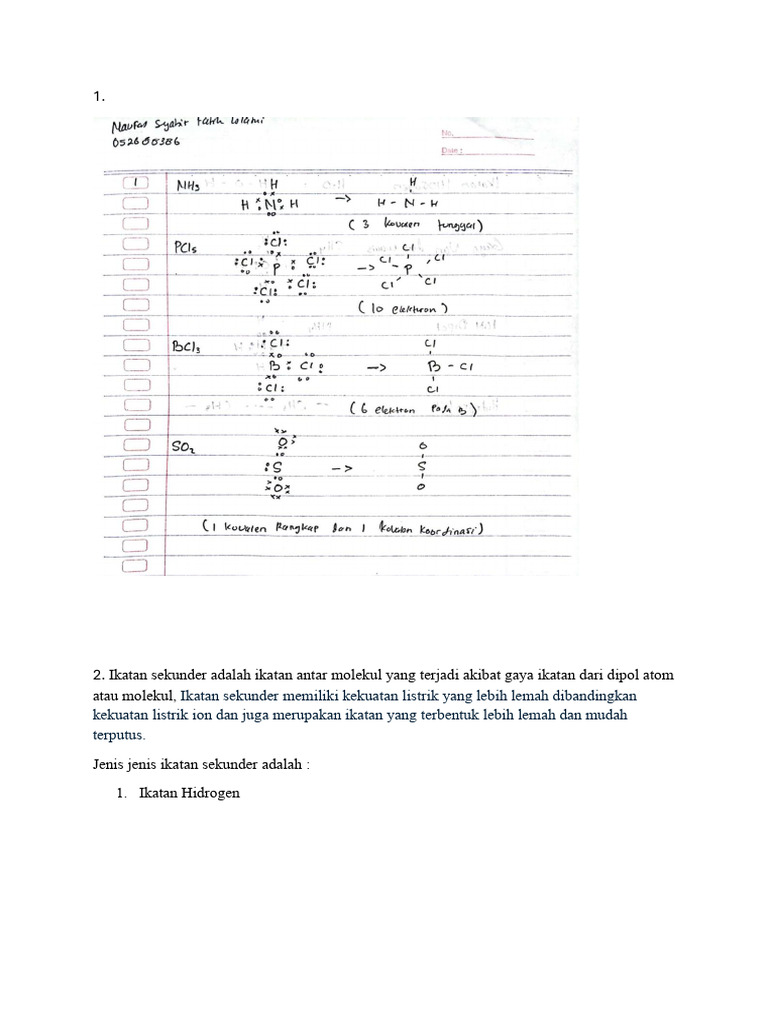 1.
Naufal Syabir Fatih Islami
No.
052600386
Date :
1 NH3 H H
H N H -> H - N - H
( 3 kovalen tunggal)
PCl5 Cl Cl
Cl P Cl -> Cl - P Cl
Cl Cl Cl Cl
( 10 elektron )
BCl3 Cl Cl
B Cl -> B - Cl
Cl Cl
( 6 elektron pada B )
SO2 O O
S -> S
O O
( 1 kovalen Rangkap dan 1 koordinasi)
2. Ikatan sekunder adalah ikatan antar molekul yang terjadi akibat gaya ikatan dari dipol atom
atau molekul, Ikatan sekunder memiliki kekuatan listrik yang lebih lemah dibandingkan
kekuatan listrik ion dan juga merupakan ikatan yang terbentuk lebih lemah dan mudah
terputus.
Jenis jenis ikatan sekunder adalah :
1. Ikatan Hidrogen